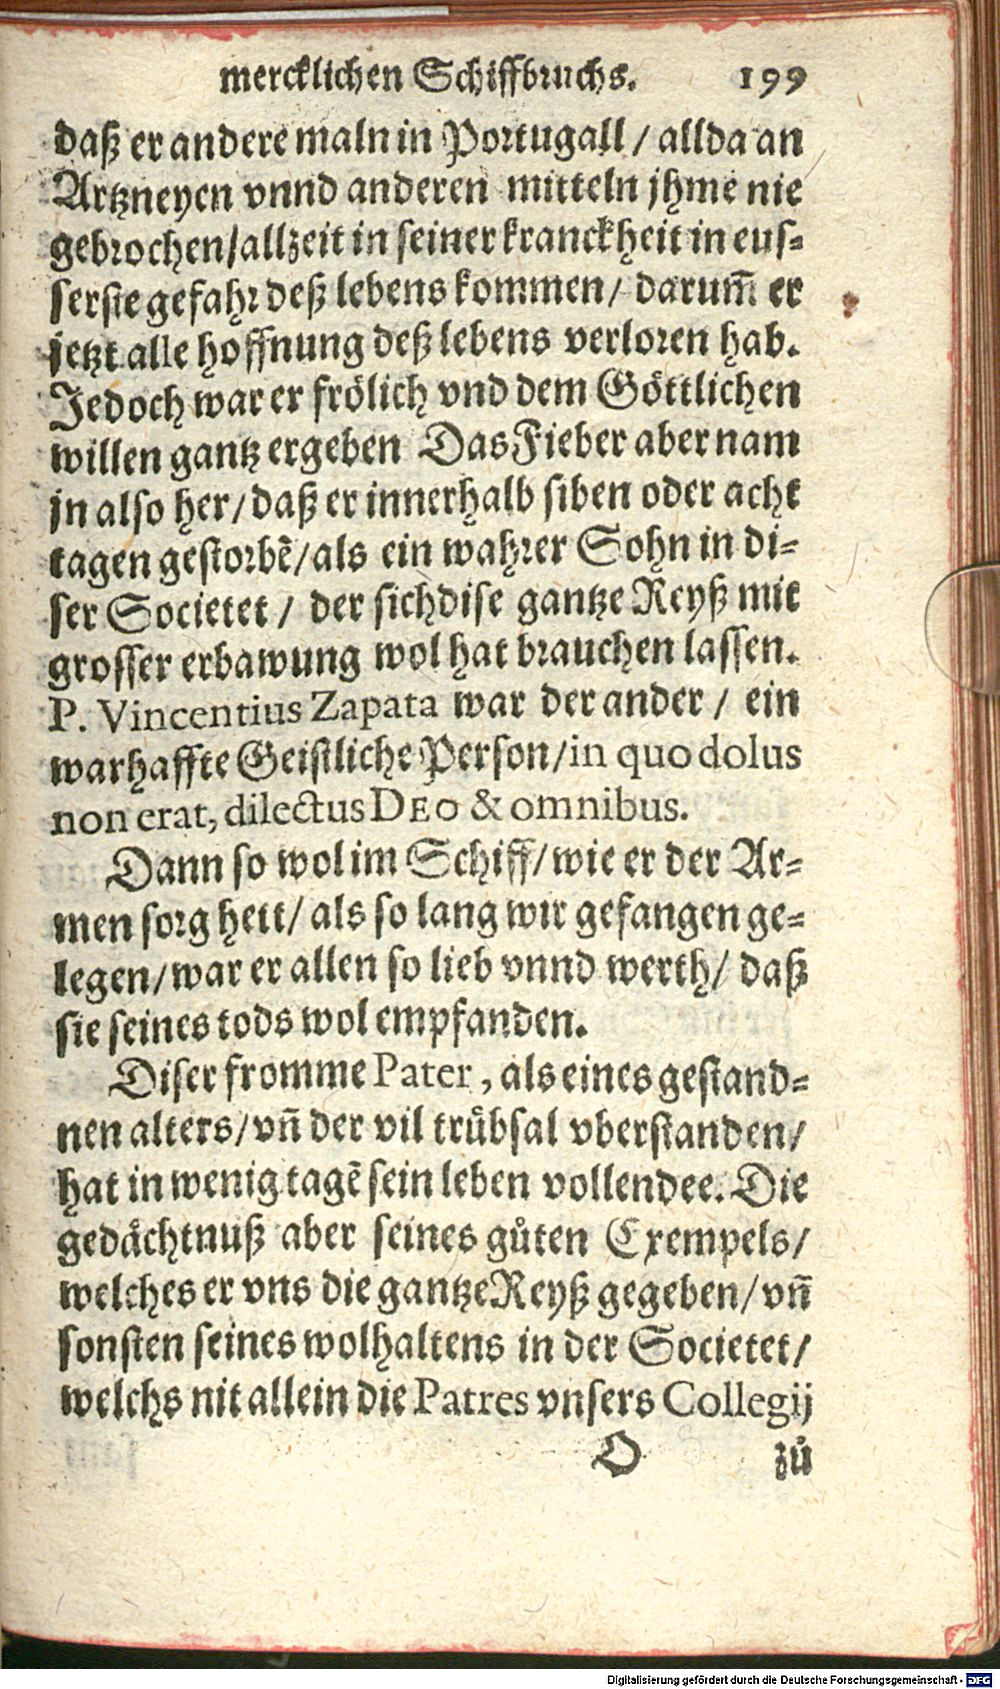 mercklichen Schiffbruchs. 199
daß er andere maln in Portugall / allda an
Artzneyen vnnd anderen mitteln jhme nie
gebrochen/allzeit in seiner kranckheit in eus-
serste gefahr deß lebens kommen/ darum̃ er
jetzt alle hoffnung deß lebens verloren hab.
Jedoch war er frölich vnd dem Göttlichen
willen gantz ergeben Das Fieber aber nam
jn also her/daß er innerhalb siben oder acht
tagen gestorbẽ/als ein wahrer Sohn in di-
ser Societet / der sich dise gantze Reyß mit
grosser erbawung wol hat brauchen lassen.
P. Vincentius Zapata war der ander / ein
warhaffte Geistliche Person/in quo dolus
non erat, dilectus DEO & omnibus.
Dann so wol im Schiff/wie er der Ar-
men sorg hett/als so lang wir gefangen ge-
legen/war er allen so lieb vnnd werth/ daß
sie seines tods wol empfanden.
Diser fromme Pater, als eines gestand-
nen alters/vñ der vil trůbsal vberstanden/
hat in wenig tagẽ sein leben vollendee. Die
gedächtnuß aber seines gůten Exempels/
welches er vns die gantze Reyß gegeben/vñ
sonsten seines wolhaltens in der Societet/
welchs nit allein die Patres vnsers Collegij
O zů
Digitalisierung gefördert durch die Deutsche Forschungsgemeinschaft - DFG